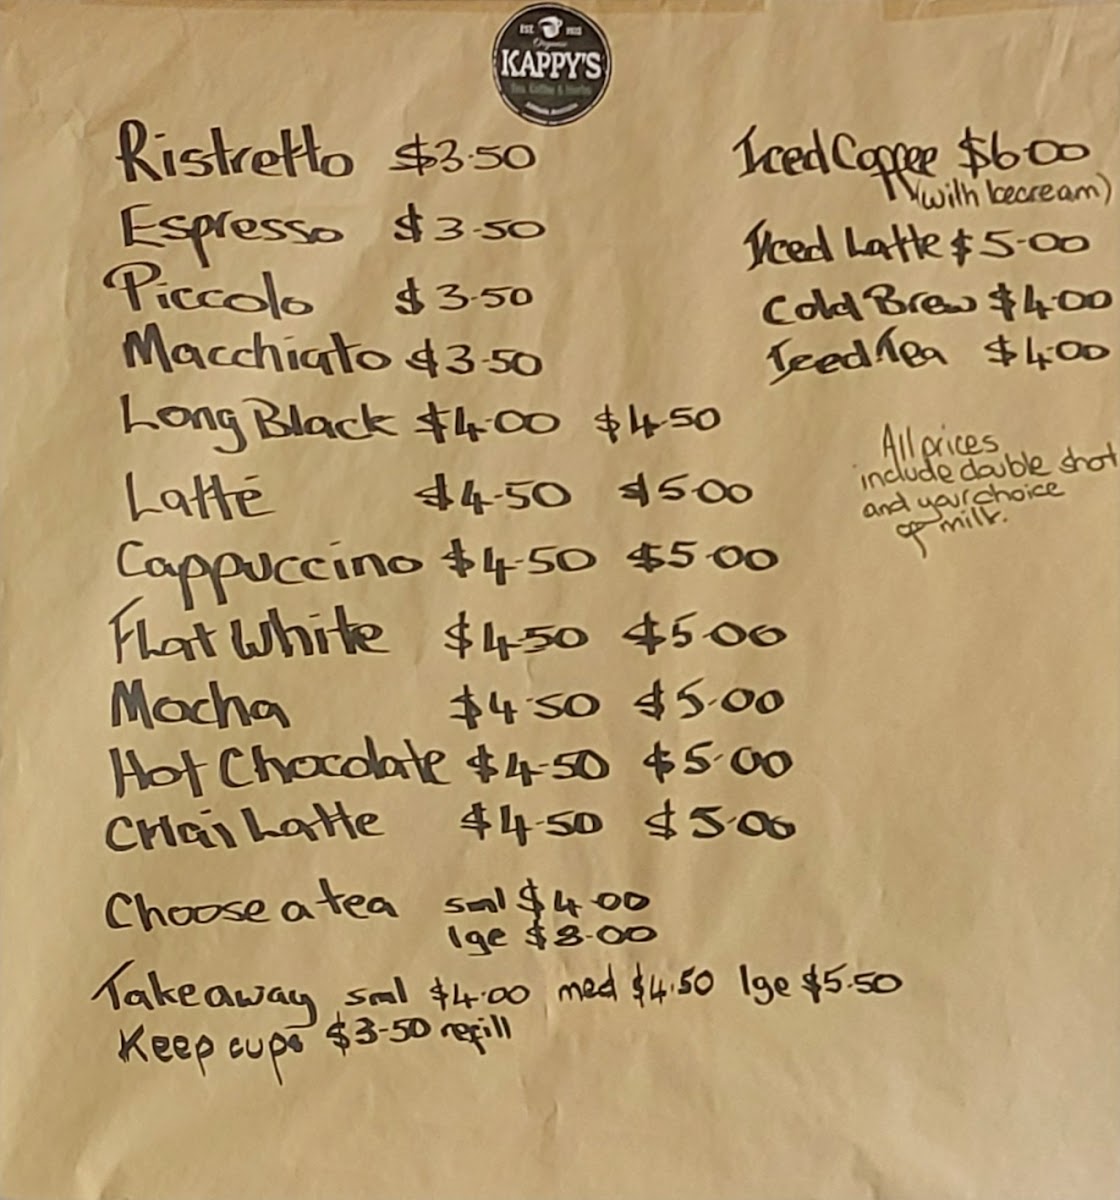 EST.
Organic
KAPPY'S
Tea Coffee & Herbs
Ristretto $3.50
Espresso $3.50
Piccolo $3.50
Macchiato $3.50
Long Black $4.00 $4.50
Latté $4.50 $5.00
Cappuccino $4.50 $5.00
Flat White $4.50 $5.00
Mocha $4.50 $5.00
Hot Chocolate $4.50 $5.00
CHai Latte $4.50 $5.00
Choose a tea sml $4.00
lge $8.00
Takeaway sml $4.00 med $4.50 lge $5.50
Keep cups $3.50 refill
Iced Coffee $6.00
(with Icecream)
Iced Latte $5.00
Cold Brew $4.00
Iced Tea $4.00
All prices
include double shot
and your choice
of milk.